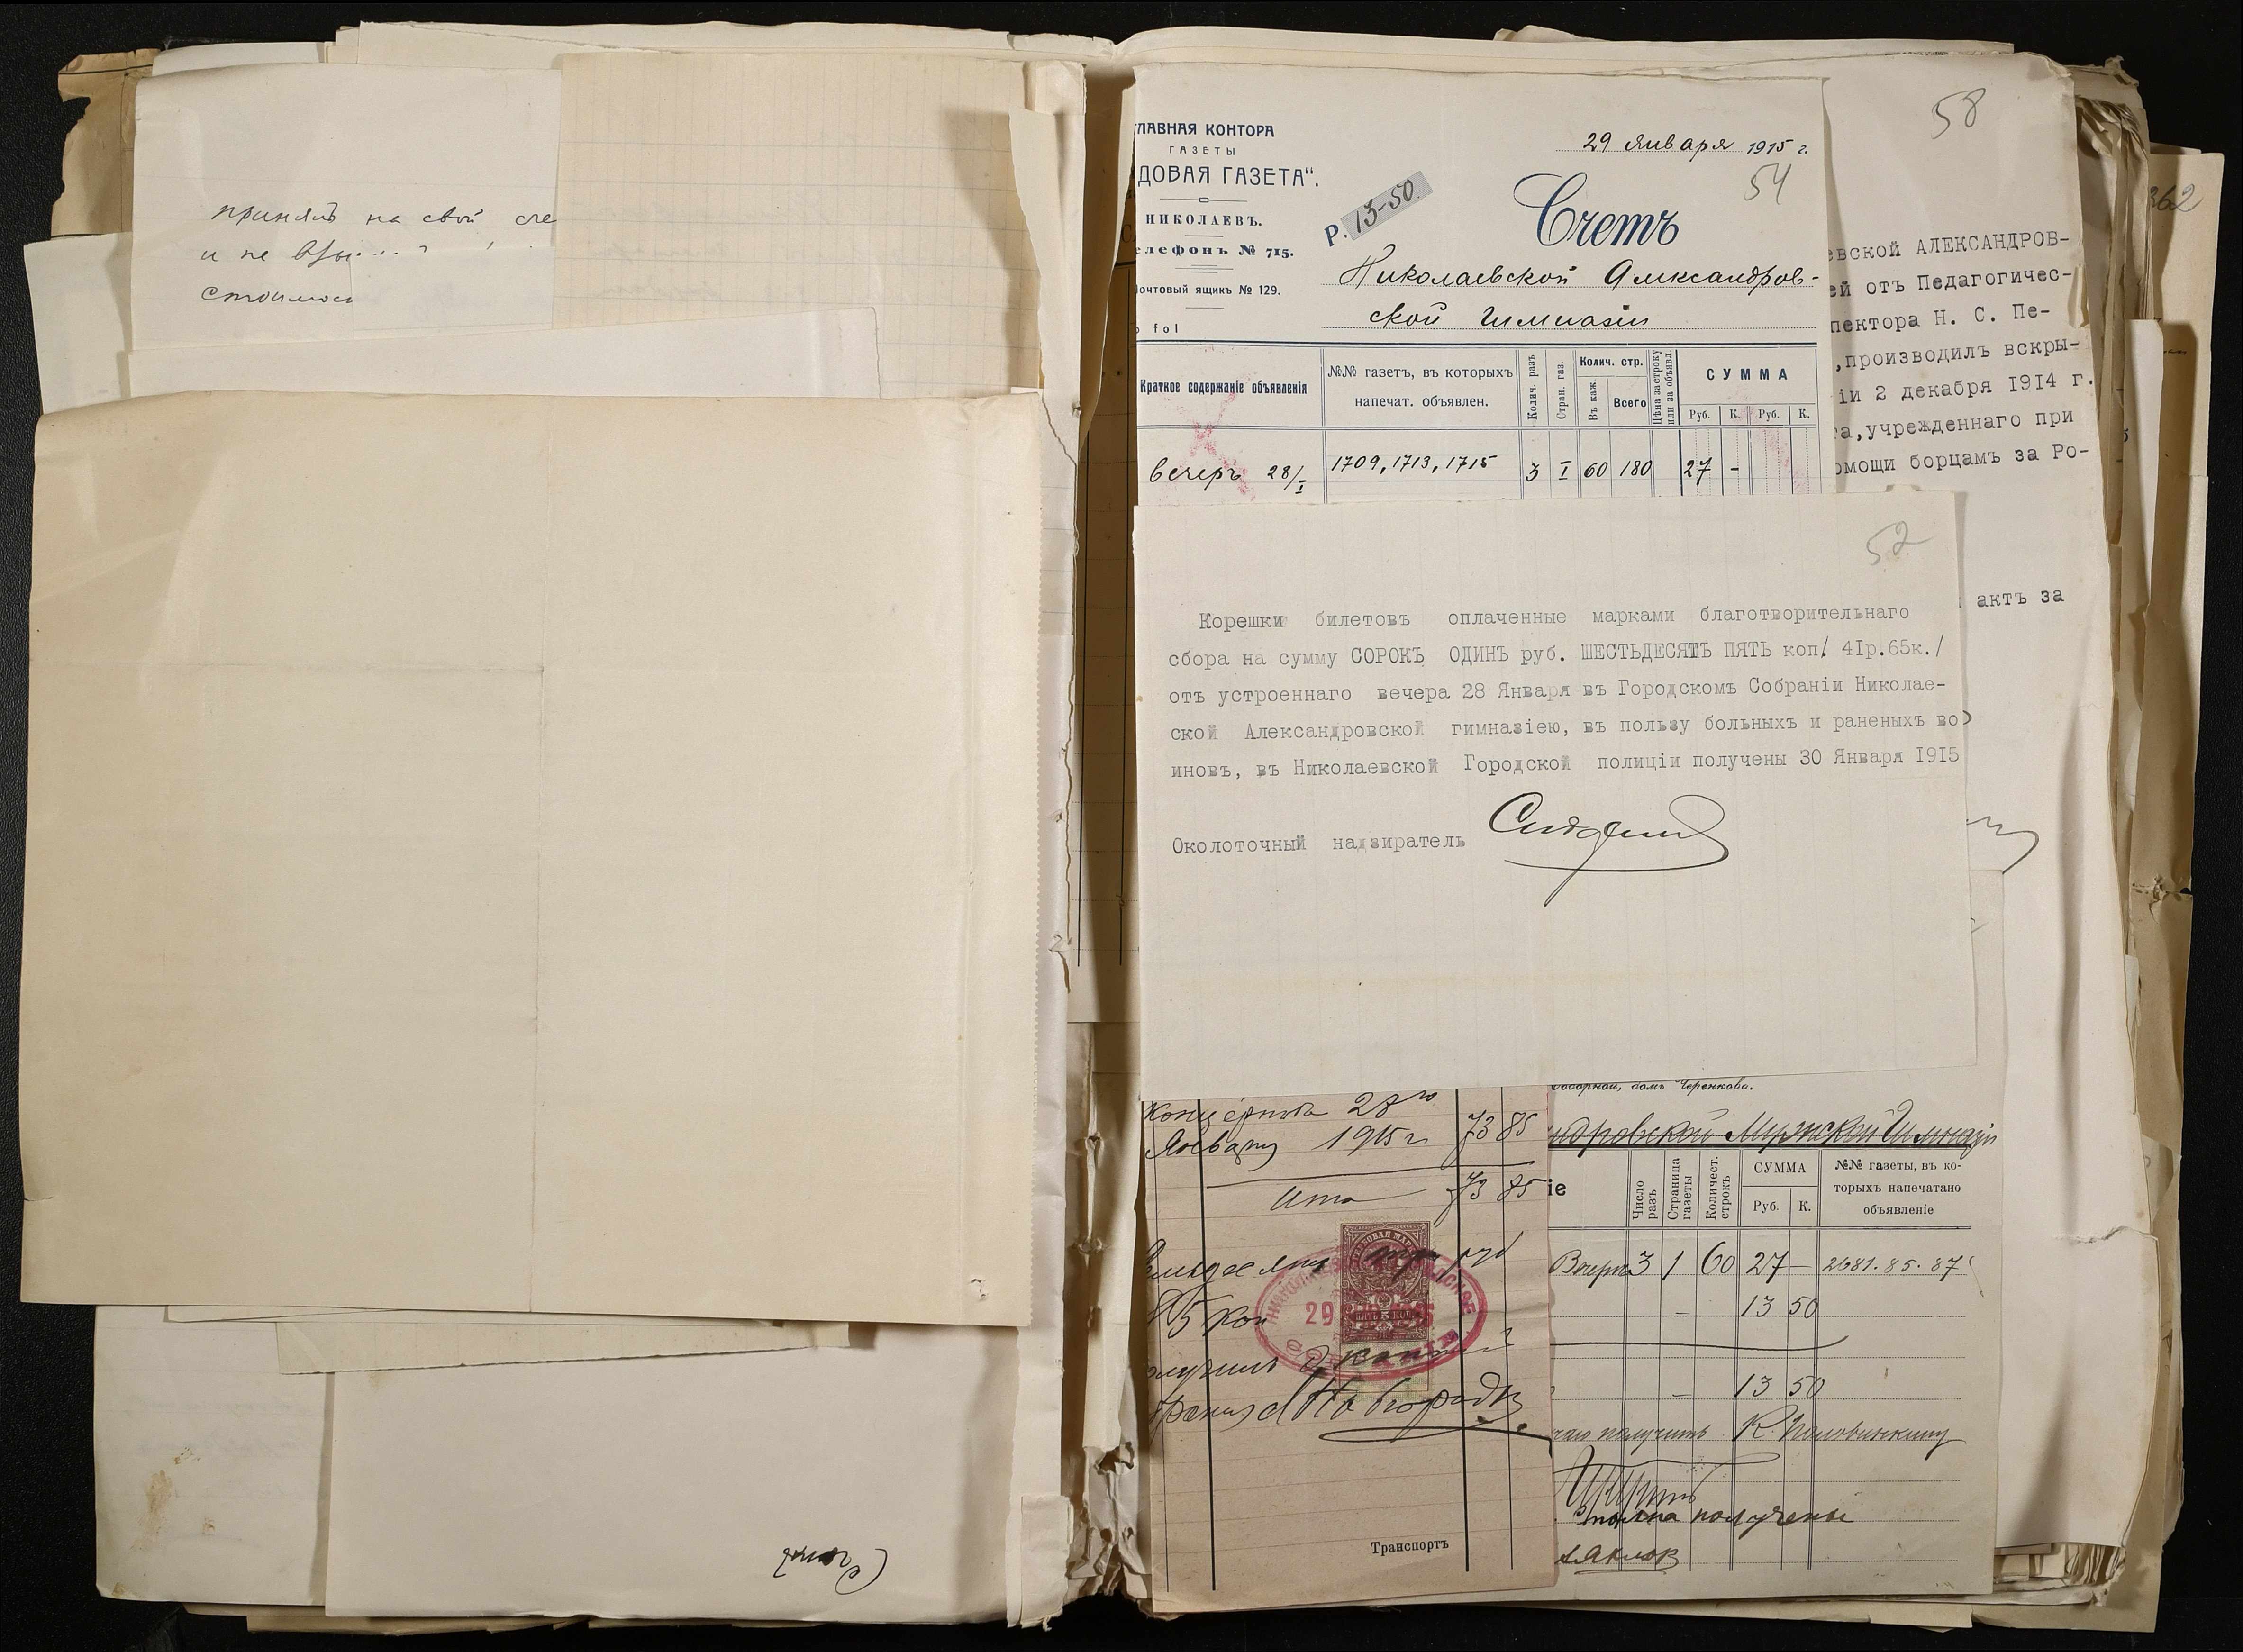 принялъ на свой сче
и не
58
362
ГЛАВНАЯ КОНТОРА
ГАЗЕТЫ
ДОВАЯ ГАЗЕТА".
НИКОЛАЕВЪ.
елефонъ № 715.
Почтовый ящикъ № 129.
fol
29 Января 1915 г.
54
Р. 13-50
Счетъ
Николаевской Александров-
ской Гимназіи
Краткое содержаніе объявленія
№№ газетъ, въ которыхъ
напечат. объявлен.
Колич. разъ
Стран. газ.
Колич. стр.
Въ каж.
Всего
Цѣна за строку
или за объявл.
СУММА
Руб. К. Руб. К.
Вечеръ 28/I 1709, 1713, 1715 3 I 60 180 27 -
евской АЛЕКСАНДРОВ-
ей отъ Педагогичес-
пектора Н. С. Пе-
,производилъ вскры-
іи 2 декабря I9I4 г.
а,учрежденнаго при
омощи борцамъ за Ро-
актъ за
52
Корешки билетовъ оплаченные марками благотворительнаго
сбора на сумму СОРОКЪ ОДИНЪ руб. ШЕСТЬДЕСЯТЪ ПЯТЬ коп/ 4Iр.65к./
отъ устроеннаго вечера 28 Января въ Городскомъ Собраніи Николае-
ской Александровской гимназіею, въ пользу больныхъ и раненыхъ во
иновъ, въ Николаевской Городской полиціи получены 30 Января I9I5
Околоточный надзиратель
Концерта 28го
Января 1915 г 73 85
Ито 73 85
руб
85 коп
29
Транспортъ
Соборной, домъ Черенкова.
ндровской Мужской Гимназіи
іе
Число
разъ
Страница
газеты
Количест.
строкъ
СУММА
Руб. К.
№№ газеты, въ ко-
торыхъ напечатано
объявленіе
Вечеръ 3 1 60 27 - 2681. 85. 87
- 13 50
- 13 50
получить К.
получены